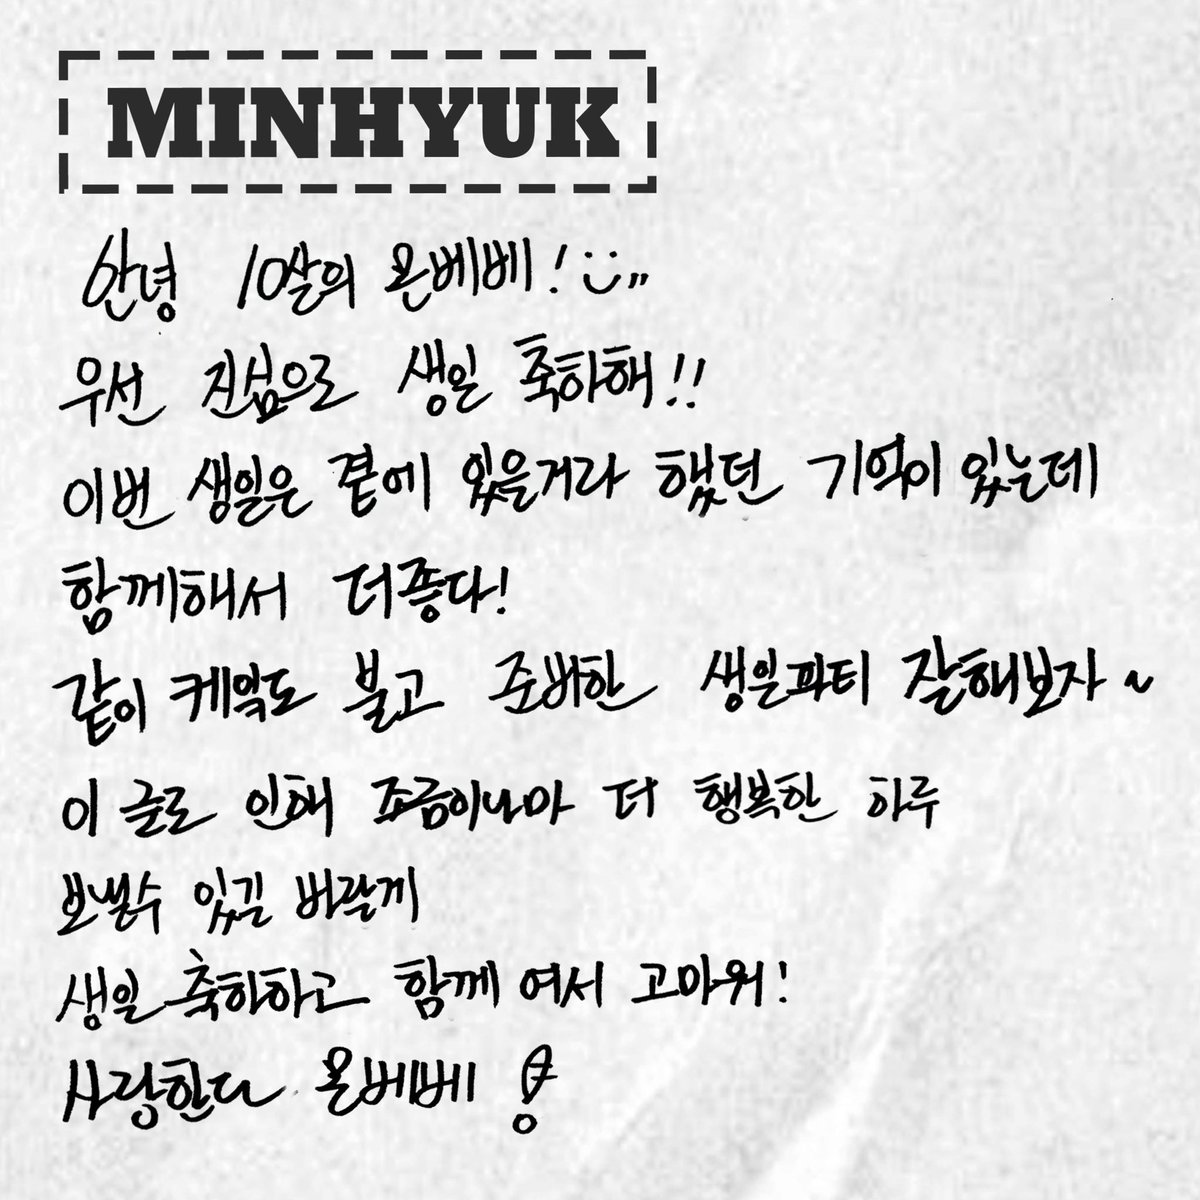 MINHYUK
안녕 10살의 몬베베!
우선 진심으로 생일 축하해!!
이번 생일은 곁에 있을거라 했던 기억이 있는데
함께해서 더좋다!
같이 케잌도 불고 준비한 생일파티 잘해보자~
이 글로 인해 조금이나마 더 행복한 하루
보낼수 있길 바랄게
생일 축하하고 함께 여서 고마워!
사랑한다 몬베베